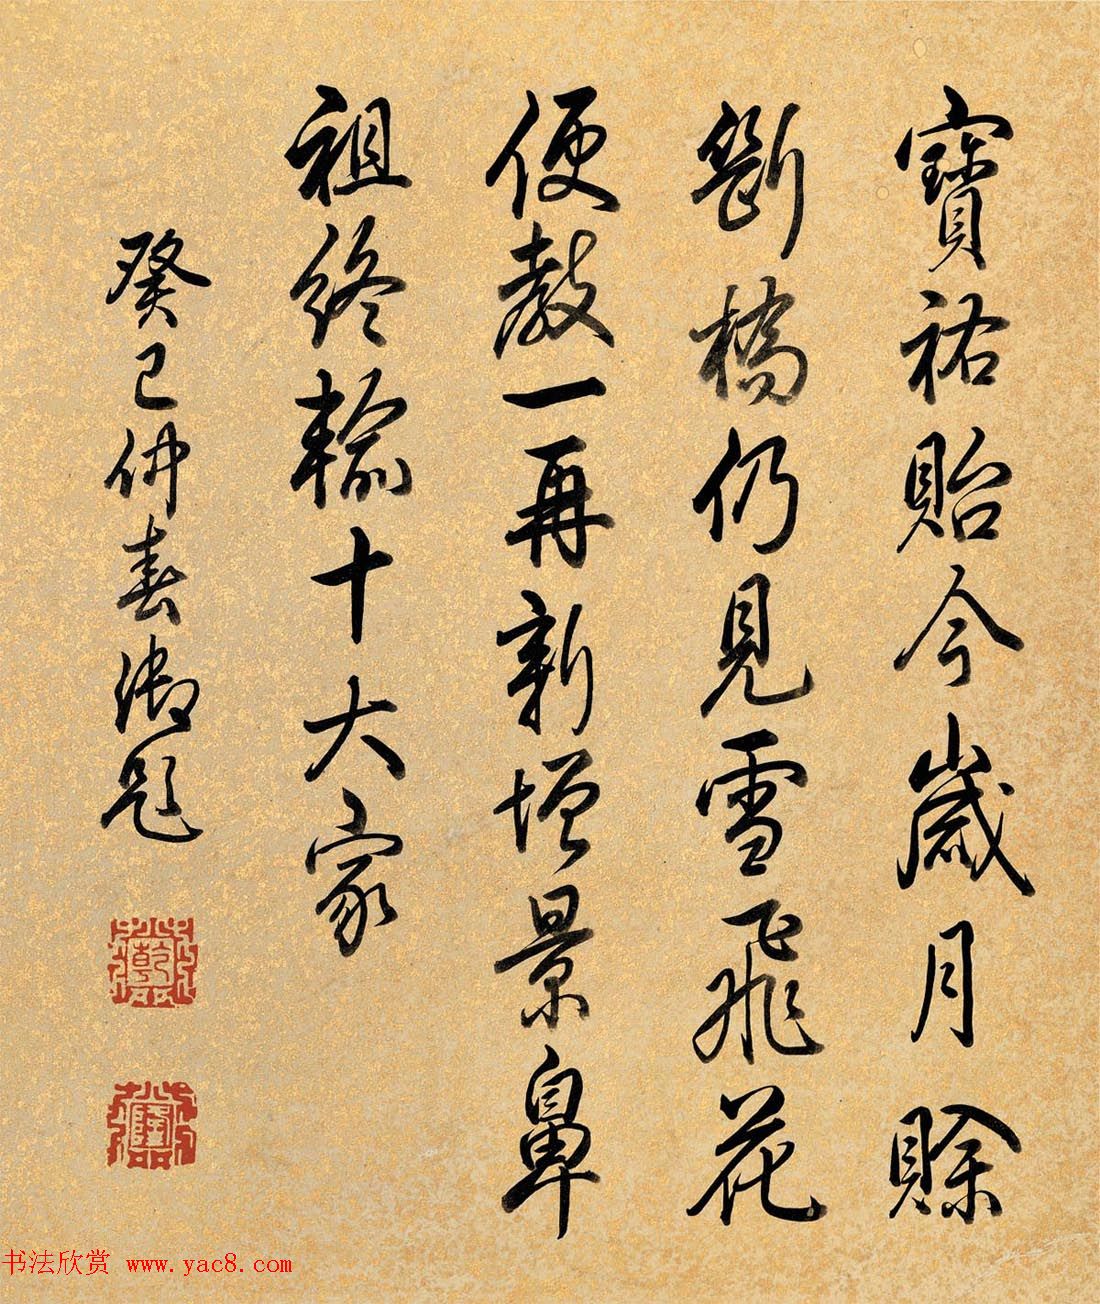 寶祐貽今歲月賒
斷橋仍見雪飛花
便教一再新增景鼻
祖終輸十大家
癸巳仲春御題
乾
隆
书法欣赏 www.yac8.com